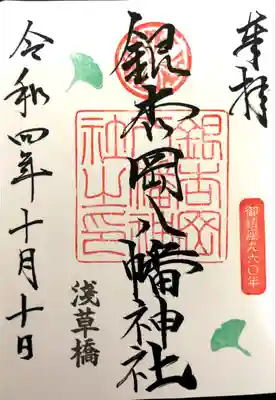 奉拝
御鎮座九六〇年
銀杏岡八幡神社
銀杏岡
八幡神
社之印
浅草橋
令和四年十月十日